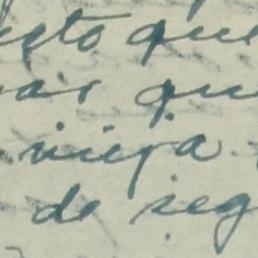 usto que
as qu
vieja
de seg